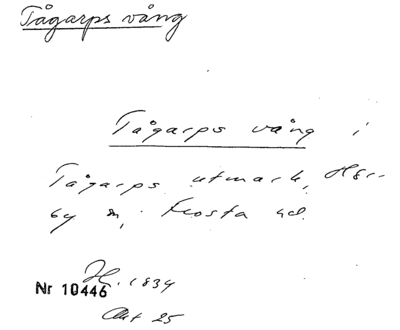 Tågarps vång
Tågarps vång i
Tågarps utmark, Hör-
by sn, Frosta hd.
H. 1834
Nr 10446
Akt 25